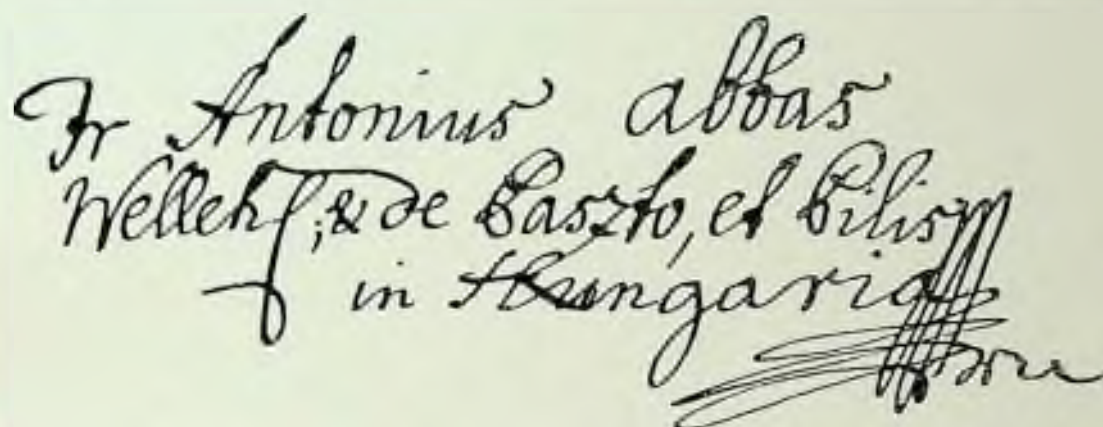 Fr Antonius abbas
Welleh; & de Paszto, et Pilis
in Hungaria
mm